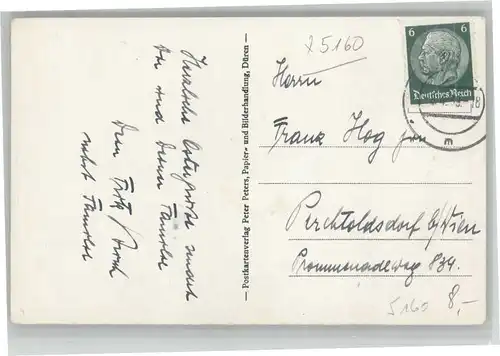 Herzliche Ostergrüsse sendet
Dir und Deiner Familie
Dein Fritz
nebst Familie
— Postkartenverlag Peter Peters, Papier- und Bilderhandlung, Düren —
x5160
6 6
Deutsches Reich
m
Herrn
Franz Hog jun
Perchtoldsdorf b/Wien
Promenadeweg 834.
5160 8,-